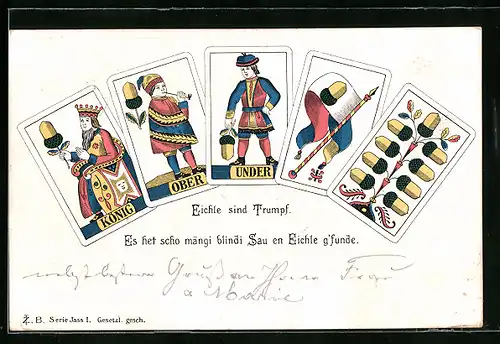 KÖNIG
OBER
UNDER
Eichle sind Trumpf.
Es het scho mängi blindi Sau en Eichle g'funde.
Gruss an Frau
Marie
Z. B. Serie Jass I. Gesetzl. gesch.